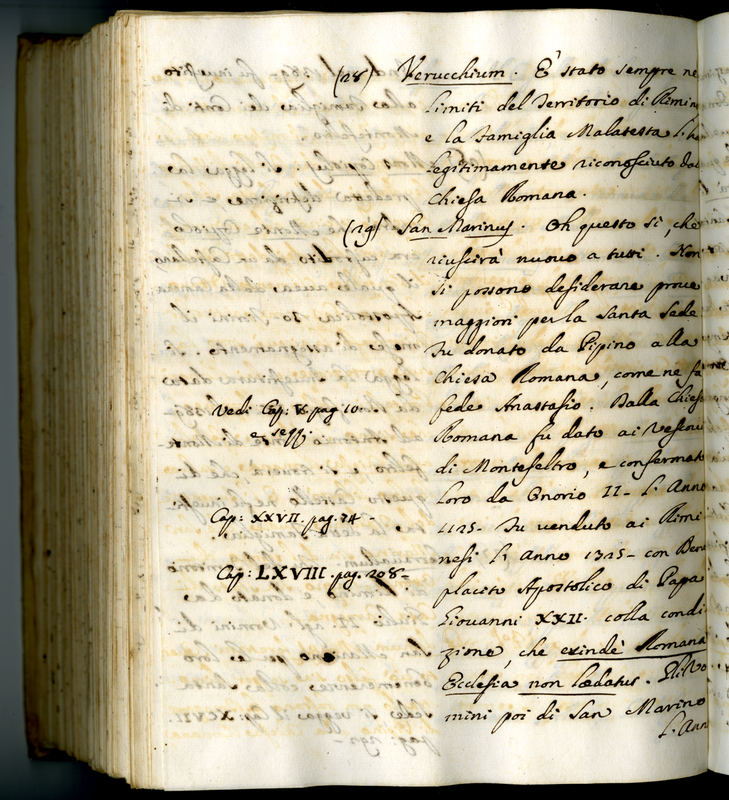 (28) Verucchium. E' stato sempre ne
limiti del Territorio di Rimin
e la Famiglia Malatesta l. ha
legitimamente riconosciuto dal
Chiesa Romana.
(29) San Marinus. Oh questo si, che
riuscirà nuovo a tutti. Non
si possono desiderare prove
maggiori per la Santa Sede
Fu donato da Pipino alla
Chiesa Romana, come ne fa
fede Anastasio. Dalla Chiesa
Vedi Cap: X. pag. 10.
e segg.
Romana fù dato ai Vescovi
di Montefeltro, e confermato
loro da Onorio II- l. Anno
Cap: XXVII. pag. 74-
1125- Fu venduto ai Rimi
nesi l. Anno 1325- con Bene
Cap: LXVIII. pag. 208-
placito Apostolico di Papa
Giovanni XXII. colla condi
zione, che exindè Romana
Ecclesia non lædatur. Gli Uo
mini poi di San Marino
l. Ann